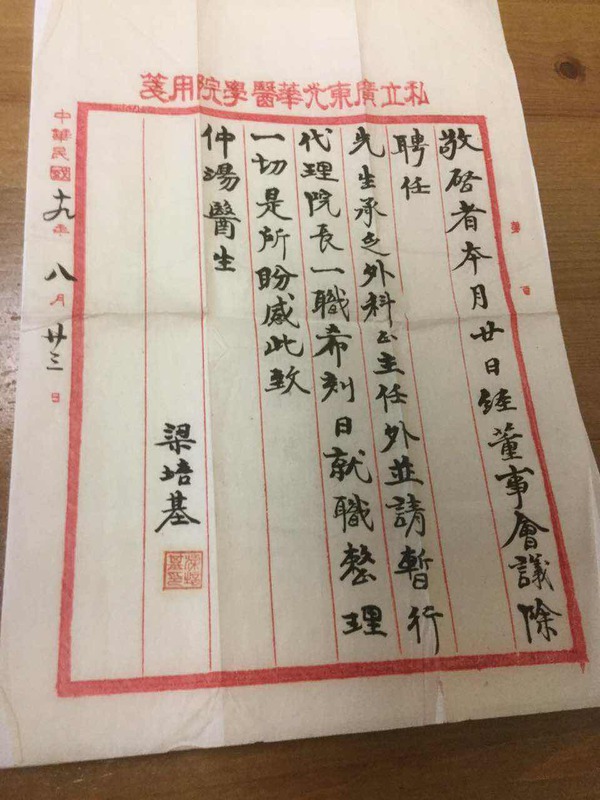 私立廣東光華醫學院用箋
敬啓者本月廿日經董事會議除
聘任
先生承乏外科正主任外並請暫行
代理院長一職希刻日就職整理
一切是所盼感此致
仲湯醫生
梁培基
中華民國十九年八月廿三日